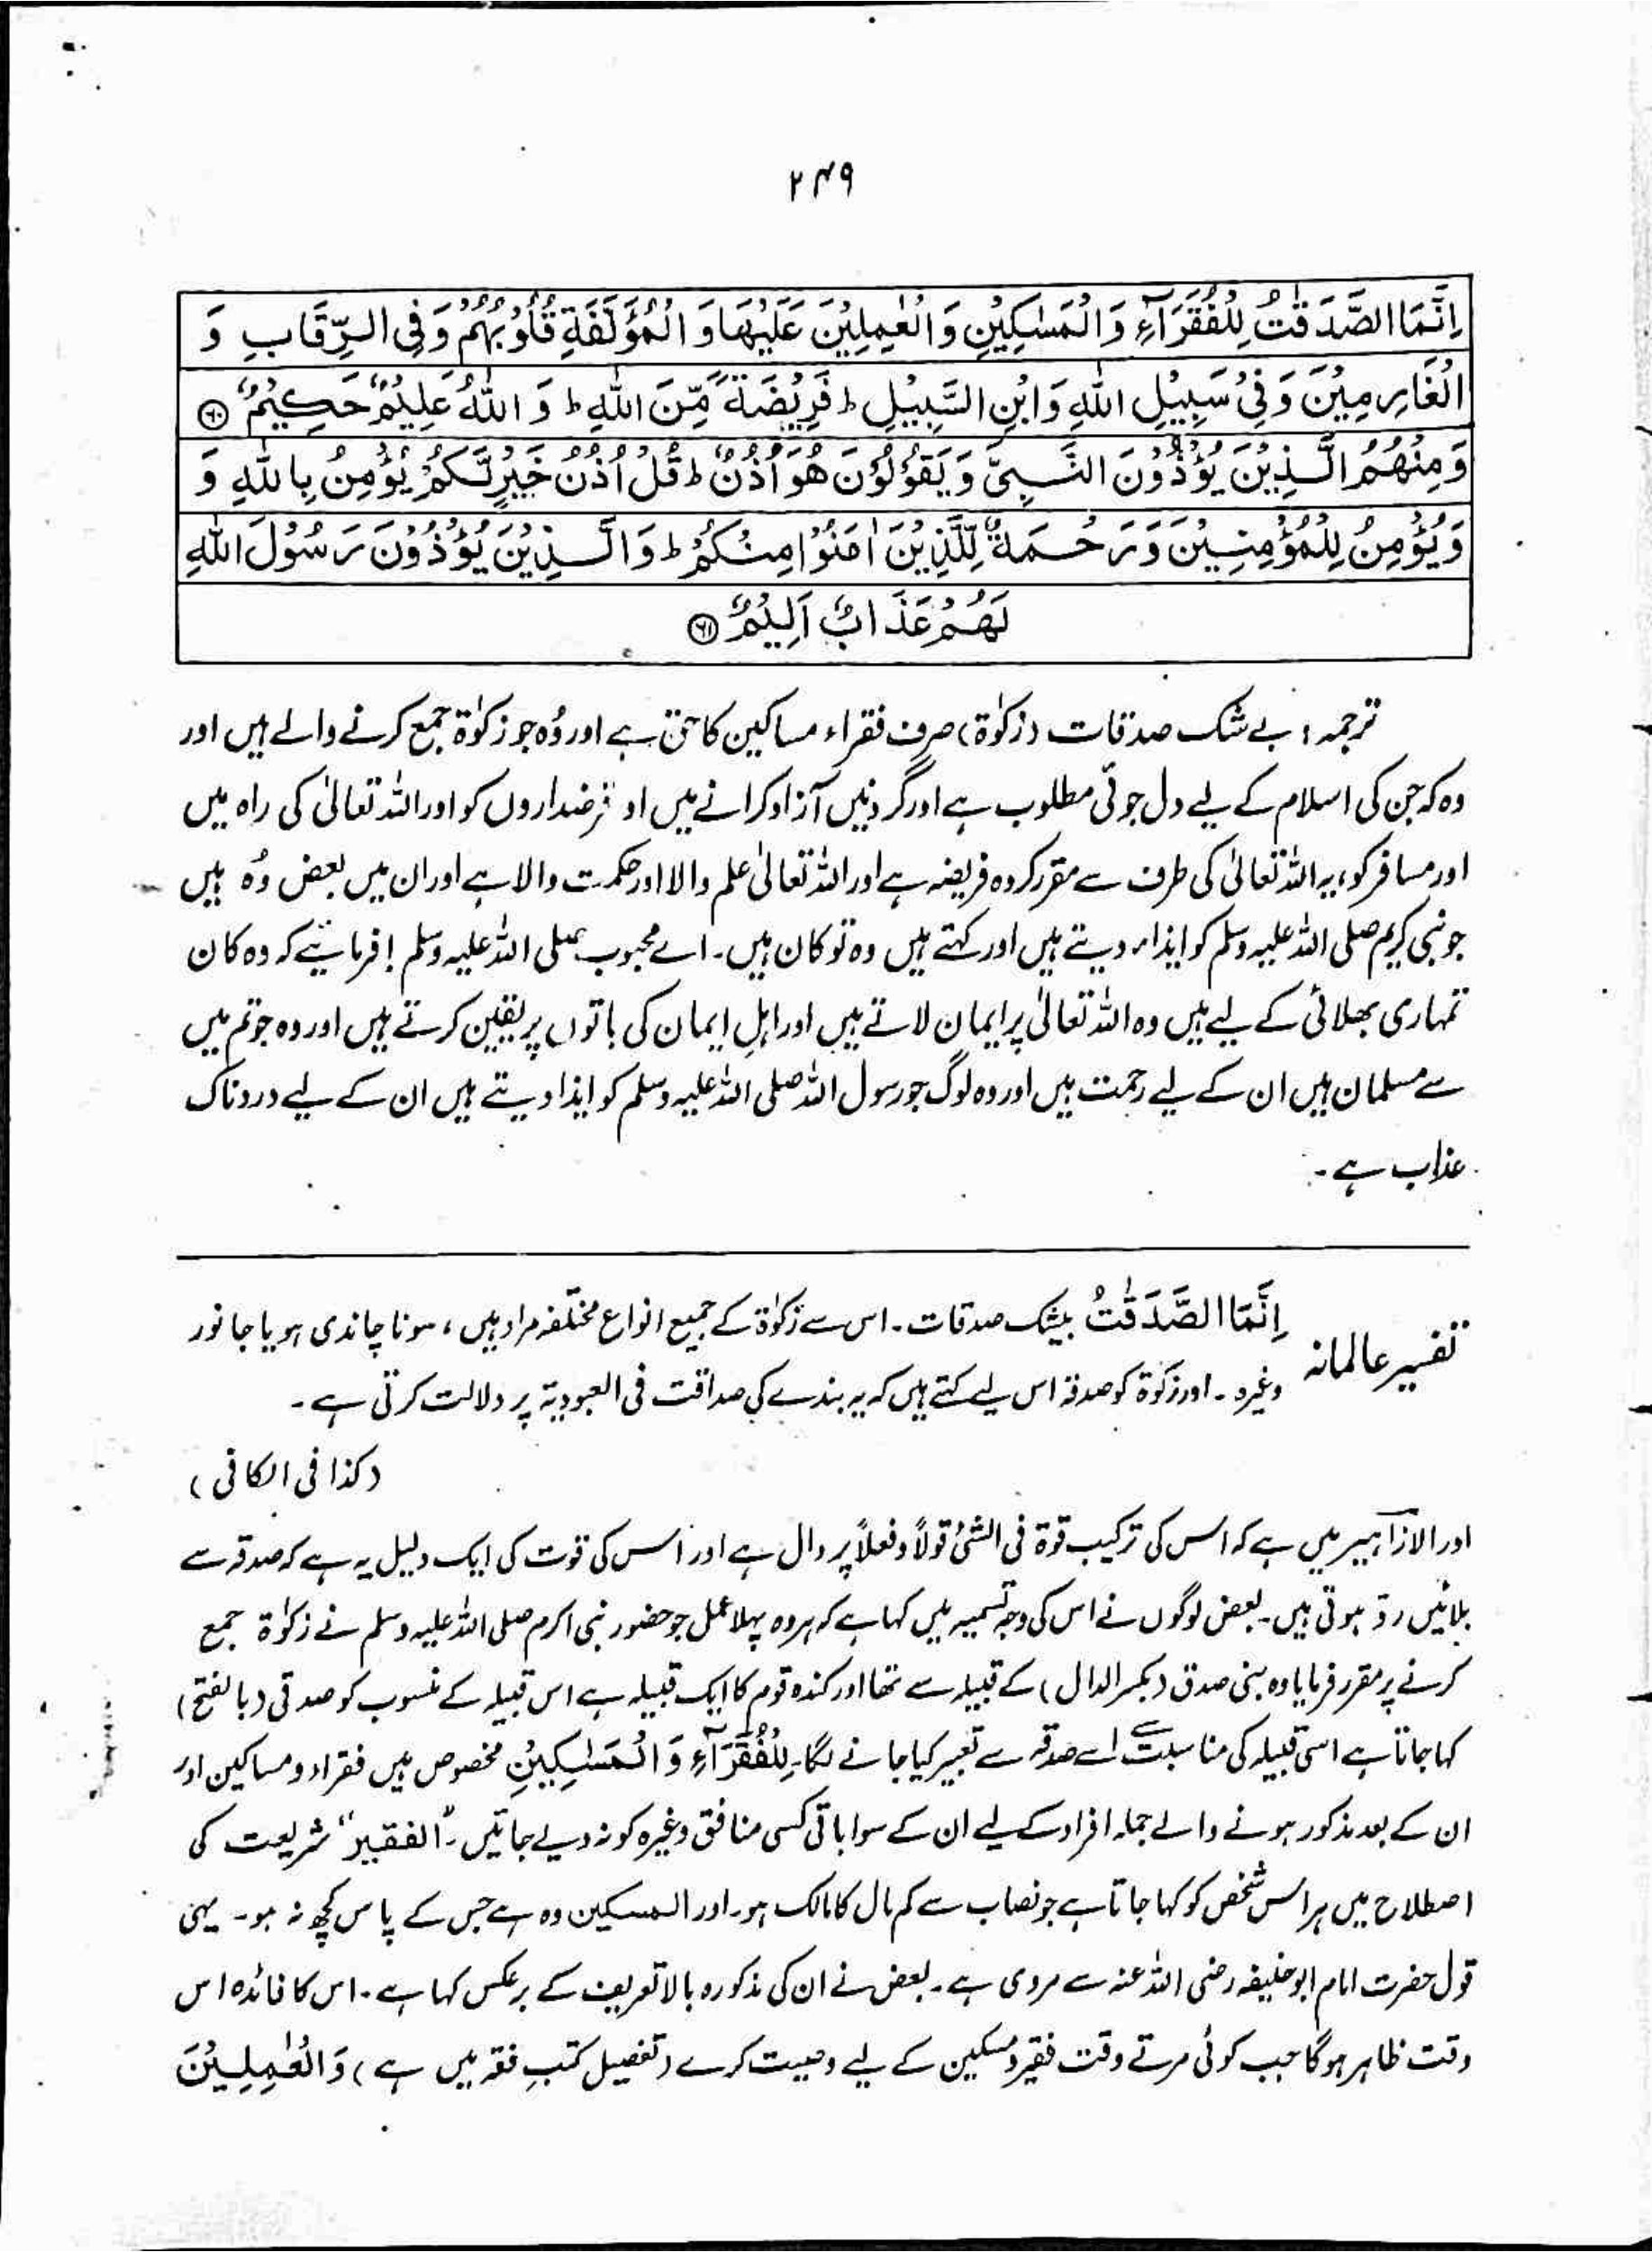 ۲۴۹
اِنَّمَا الصَّدَقٰتُ لِلْفُقَرَآءِ وَ الْمَسٰكِيْنِ وَ الْعٰمِلِيْنَ عَلَيْهَا وَ الْمُؤَلَّفَةِ قُلُوْبُهُمْ وَ فِى الرِّقَابِ وَ
الْغَارِمِيْنَ وَ فِىْ سَبِيْلِ اللّٰهِ وَ ابْنِ السَّبِيْلِ ط فَرِيْضَةً مِّنَ اللّٰهِ ط وَ اللّٰهُ عَلِيْمٌ حَكِيْمٌ ۝۶۰
وَ مِنْهُمُ الَّذِيْنَ يُؤْذُوْنَ النَّبِىَّ وَ يَقُوْلُوْنَ هُوَ اُذُنٌ ط قُلْ اُذُنُ خَيْرٍ لَّكُمْ يُؤْمِنُ بِاللّٰهِ وَ
وَ يُؤْمِنُ لِلْمُؤْمِنِيْنَ وَ رَحْمَةٌ لِّلَّذِيْنَ اٰمَنُوْا مِنْكُمْ ط وَ الَّذِيْنَ يُؤْذُوْنَ رَسُوْلَ اللّٰهِ
لَهُمْ عَذَابٌ اَلِيْمٌ ۝۶۱
ترجمہ : بے شک صدقات (زکوٰۃ) صرف فقراء مساکین کا حق ہے اور وُہ جو زکوٰۃ جمع کرنے والے ہیں اور
وہ کہ جن کی اسلام کے لیے دل جوئی مطلوب ہے اور گردنیں آزاد کرانے میں او قرضداروں کو اور اللہ تعالیٰ کی راہ میں
اور مسافر کو، یہ اللہ تعالیٰ کی طرف سے مقرر کردہ فریضہ ہے اور اللہ تعالیٰ علم والا اور حکمت والا ہے اور ان میں بعض وُہ ہیں
جو نبی کریم صلی اللہ علیہ وسلم کو ایذاء دیتے ہیں اور کہتے ہیں وہ تو کان ہیں۔ اے محبوب صلی اللہ علیہ وسلم ! فرمایئے کہ وہ کان
تمہاری بھلائی کے لیے ہیں وہ اللہ تعالیٰ پر ایمان لاتے ہیں اور اہلِ ایمان کی باتوں پر یقین کرتے ہیں اور وہ جو تم میں
سے مسلمان ہیں ان کے لیے رحمت ہیں اور وہ لوگ جو رسول اللہ صلی اللہ علیہ وسلم کو ایذا دیتے ہیں ان کے لیے دردناک
عذاب ہے۔
تفسیر عالمانہ اِنَّمَا الصَّدَقٰتُ بیشک صدقات۔ اس سے زکوٰۃ کے جمیع انواع مختلفہ مراد ہیں، سونا چاندی ہو یا جانور
وغیرہ۔ اور زکوٰۃ کو صدقہ اس لیے کہتے ہیں کہ یہ بندے کی صداقت فی العبودیۃ پر دلالت کرتی ہے۔
(کذا فی الکافی)
اور الازاہیر میں ہے کہ اس کی ترکیب قوۃ فی الشئ قولاً و فعلاً پر دال ہے اور اس کی قوت کی ایک دلیل یہ ہے کہ صدقہ سے
بلائیں ردّ ہوتی ہیں۔ بعض لوگوں نے اس کی وجہ تسمیہ میں کہا ہے کہ ہر وہ پہلا عمل جو حضور نبی اکرم صلی اللہ علیہ وسلم نے زکوٰۃ جمع
کرنے پر مقرر فرمایا وہ بنی صدق (بکسر الدال) کے قبیلہ سے تھا اور کندہ قوم کا ایک قبیلہ ہے اس قبیلہ کے منسوب کو صدقی (بالفتح)
کہا جاتا ہے اسی قبیلہ کی مناسبت سے اسے صدقہ سے تعبیر کیا جانے لگا۔ لِلْفُقَرَآءِ وَ الْمَسٰكِيْنِ مخصوص ہیں فقراء و مساکین اور
ان کے بعد مذکور ہونے والے جملہ افراد کے لیے ان کے سوا باقی کسی منافق وغیرہ کو نہ دیے جائیں۔ "الفقیر" شریعت کی
اصطلاح میں ہر اس شخص کو کہا جاتا ہے جو نصاب سے کم مال کا مالک ہو۔ اور المسکین وہ ہے جس کے پاس کچھ نہ ہو۔ یہی
قول حضرت امام ابوحنیفہ رضی اللہ عنہ سے مروی ہے۔ بعض نے ان کی مذکورہ بالا تعریف کے برعکس کہا ہے۔ اس کا فائدہ اس
وقت ظاہر ہوگا جب کوئی مرتے وقت فقیر و مسکین کے لیے وصیت کرے (تفصیل کتبِ فقہ میں ہے) وَ الْعٰمِلِيْنَ